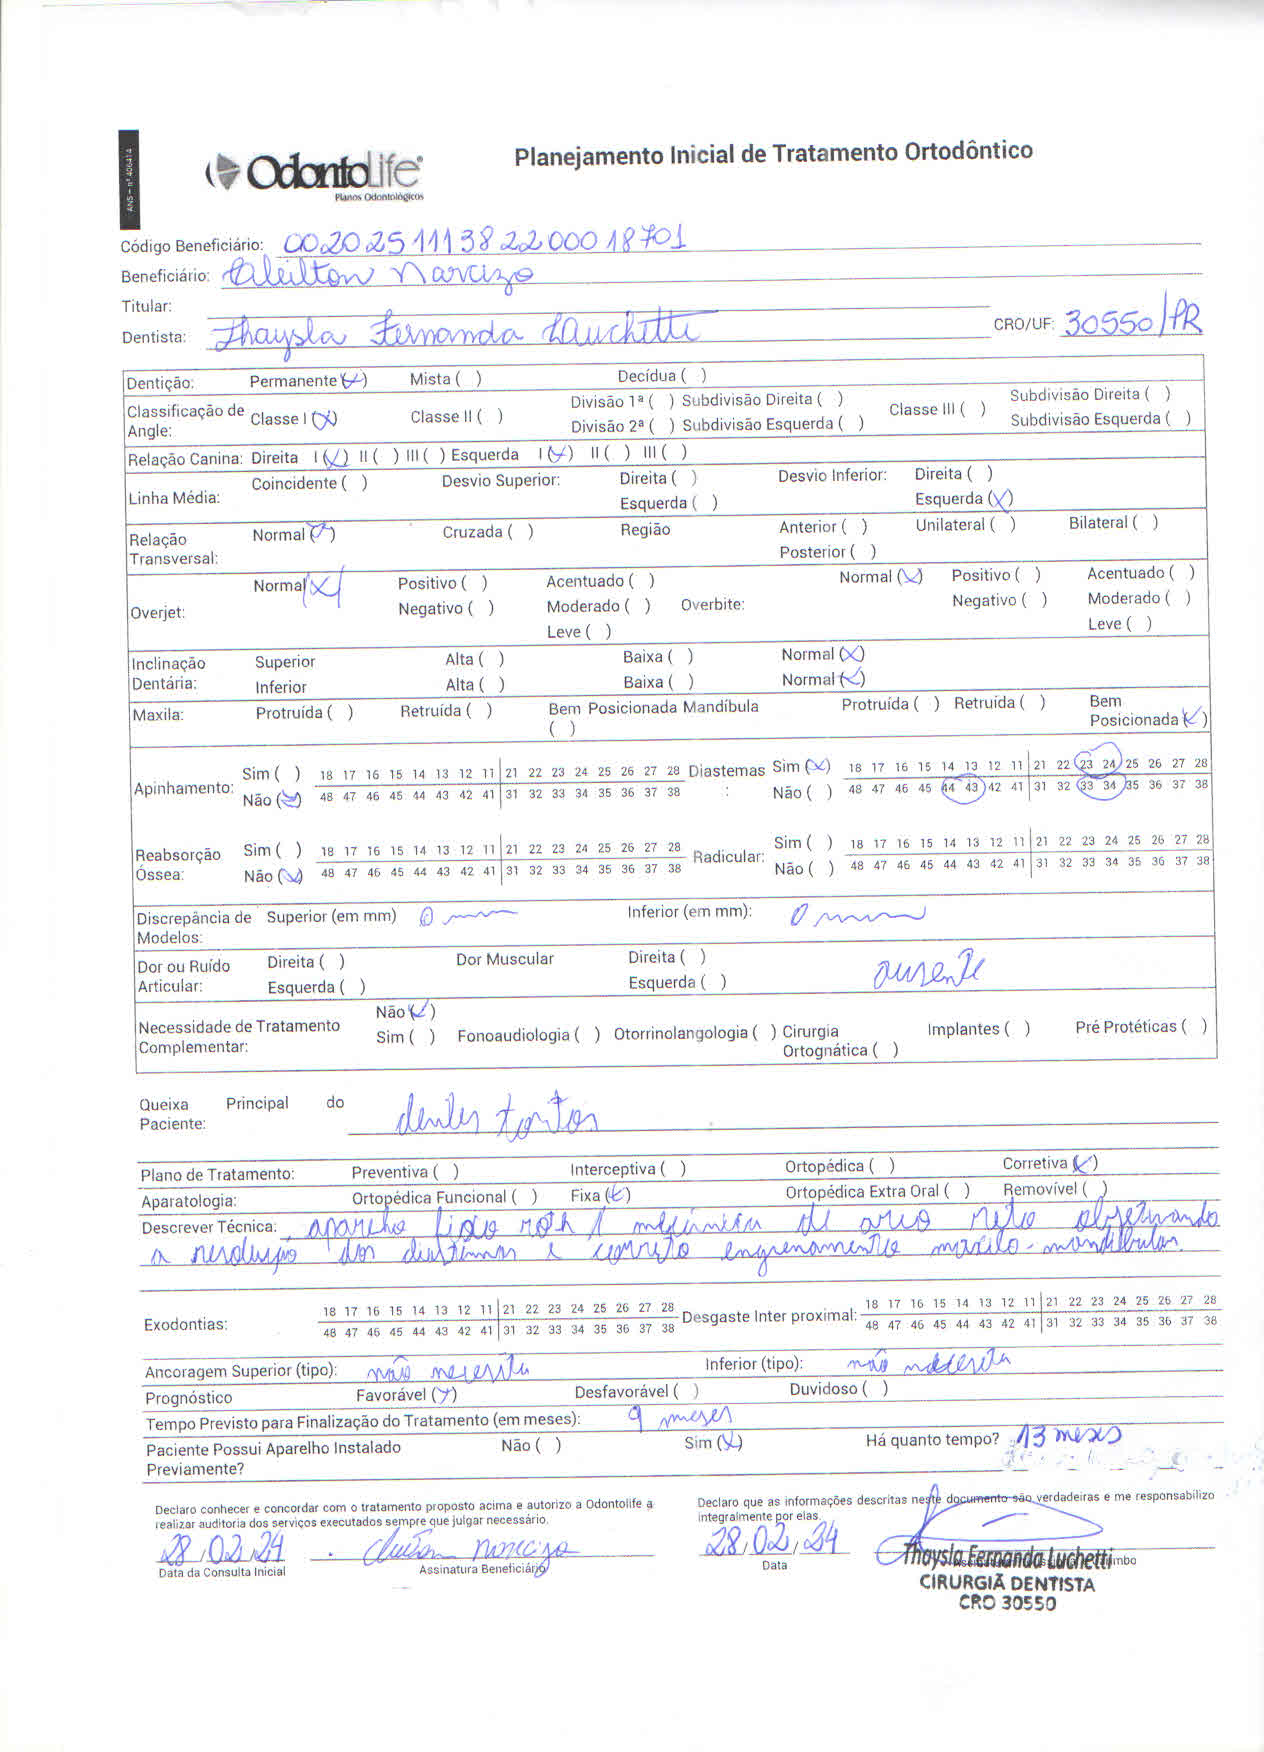 ANS - nº 406414
OdontoLife®
Planos Odontológicos
Planejamento Inicial de Tratamento Ortodôntico
Código Beneficiário: 00202511138220001 8701
Beneficiário: Cleilton Narcizo
Titular:
Dentista: Thaysla Fernanda Luchetti CRO/UF: 30550/PR
Dentição: Permanente (x) Mista ( ) Decídua ( )
Classificação de Angle: Classe I (x) Classe II ( ) Divisão 1ª ( ) Subdivisão Direita ( ) Classe III ( ) Subdivisão Direita ( )
Divisão 2ª ( ) Subdivisão Esquerda ( ) Subdivisão Esquerda ( )
Relação Canina: Direita I (x) II ( ) III ( ) Esquerda I (x) II ( ) III ( )
Linha Média: Coincidente ( ) Desvio Superior: Direita ( ) Desvio Inferior: Direita ( )
Esquerda ( ) Esquerda (x)
Relação Transversal: Normal (x) Cruzada ( ) Região Anterior ( ) Unilateral ( ) Bilateral ( )
Posterior ( )
Overjet: Normal (x) Positivo ( ) Acentuado ( ) Overbite: Normal (x) Positivo ( ) Acentuado ( )
Negativo ( ) Moderado ( ) Negativo ( ) Moderado ( )
Leve ( ) Leve ( )
Inclinação Dentária: Superior Alta ( ) Baixa ( ) Normal (x)
Inferior Alta ( ) Baixa ( ) Normal (x)
Maxila: Protruída ( ) Retruída ( ) Bem Posicionada ( ) Mandíbula Protruída ( ) Retruída ( ) Bem Posicionada (x)
Apinhamento: Sim ( ) 18 17 16 15 14 13 12 11 21 22 23 24 25 26 27 28 Diastemas: Sim (x) 18 17 16 15 14 13 12 11 21 22 23 24 25 26 27 28
Não (x) 48 47 46 45 44 43 42 41 31 32 33 34 35 36 37 38 Não ( ) 48 47 46 45 44 43 42 41 31 32 33 34 35 36 37 38
Reabsorção Óssea: Sim ( ) 18 17 16 15 14 13 12 11 21 22 23 24 25 26 27 28 Radicular: Sim ( ) 18 17 16 15 14 13 12 11 21 22 23 24 25 26 27 28
Não (x) 48 47 46 45 44 43 42 41 31 32 33 34 35 36 37 38 Não ( ) 48 47 46 45 44 43 42 41 31 32 33 34 35 36 37 38
Discrepância de Modelos: Superior (em mm) 0 mm Inferior (em mm): 0 mm
Dor ou Ruído Articular: Direita ( ) Dor Muscular Direita ( ) ausente
Esquerda ( ) Esquerda ( )
Necessidade de Tratamento Complementar: Não (x)
Sim ( ) Fonoaudiologia ( ) Otorrinolangologia ( ) Cirurgia Ortognática ( ) Implantes ( ) Pré Protéticas ( )
Queixa Principal do Paciente: dentes tortos
Plano de Tratamento: Preventiva ( ) Interceptiva ( ) Ortopédica ( ) Corretiva (x)
Aparatologia: Ortopédica Funcional ( ) Fixa (x) Ortopédica Extra Oral ( ) Removível ( )
Descrever Técnica: aparelho fixo roth / mecânica de arco reto objetivando
a resolução dos diastemas e correto engrenamento maxilo-mandibular.
Exodontias: 18 17 16 15 14 13 12 11 21 22 23 24 25 26 27 28 Desgaste Inter proximal: 18 17 16 15 14 13 12 11 21 22 23 24 25 26 27 28
48 47 46 45 44 43 42 41 31 32 33 34 35 36 37 38 48 47 46 45 44 43 42 41 31 32 33 34 35 36 37 38
Ancoragem Superior (tipo): não necessita Inferior (tipo): não necessita
Prognóstico Favorável (x) Desfavorável ( ) Duvidoso ( )
Tempo Previsto para Finalização do Tratamento (em meses): 9 meses
Paciente Possui Aparelho Instalado Previamente? Não ( ) Sim (x) Há quanto tempo? 13 meses
Declaro conhecer e concordar com o tratamento proposto acima e autorizo a Odontolife a realizar auditoria dos serviços executados sempre que julgar necessário.
Declaro que as informações descritas neste documento são verdadeiras e me responsabilizo integralmente por elas.
28/02/24 Cleilton Narcizo 28/02/24
Data da Consulta Inicial Assinatura Beneficiário Data
Thaysla Fernanda Luchetti
CIRURGIÃ DENTISTA
CRO 30550